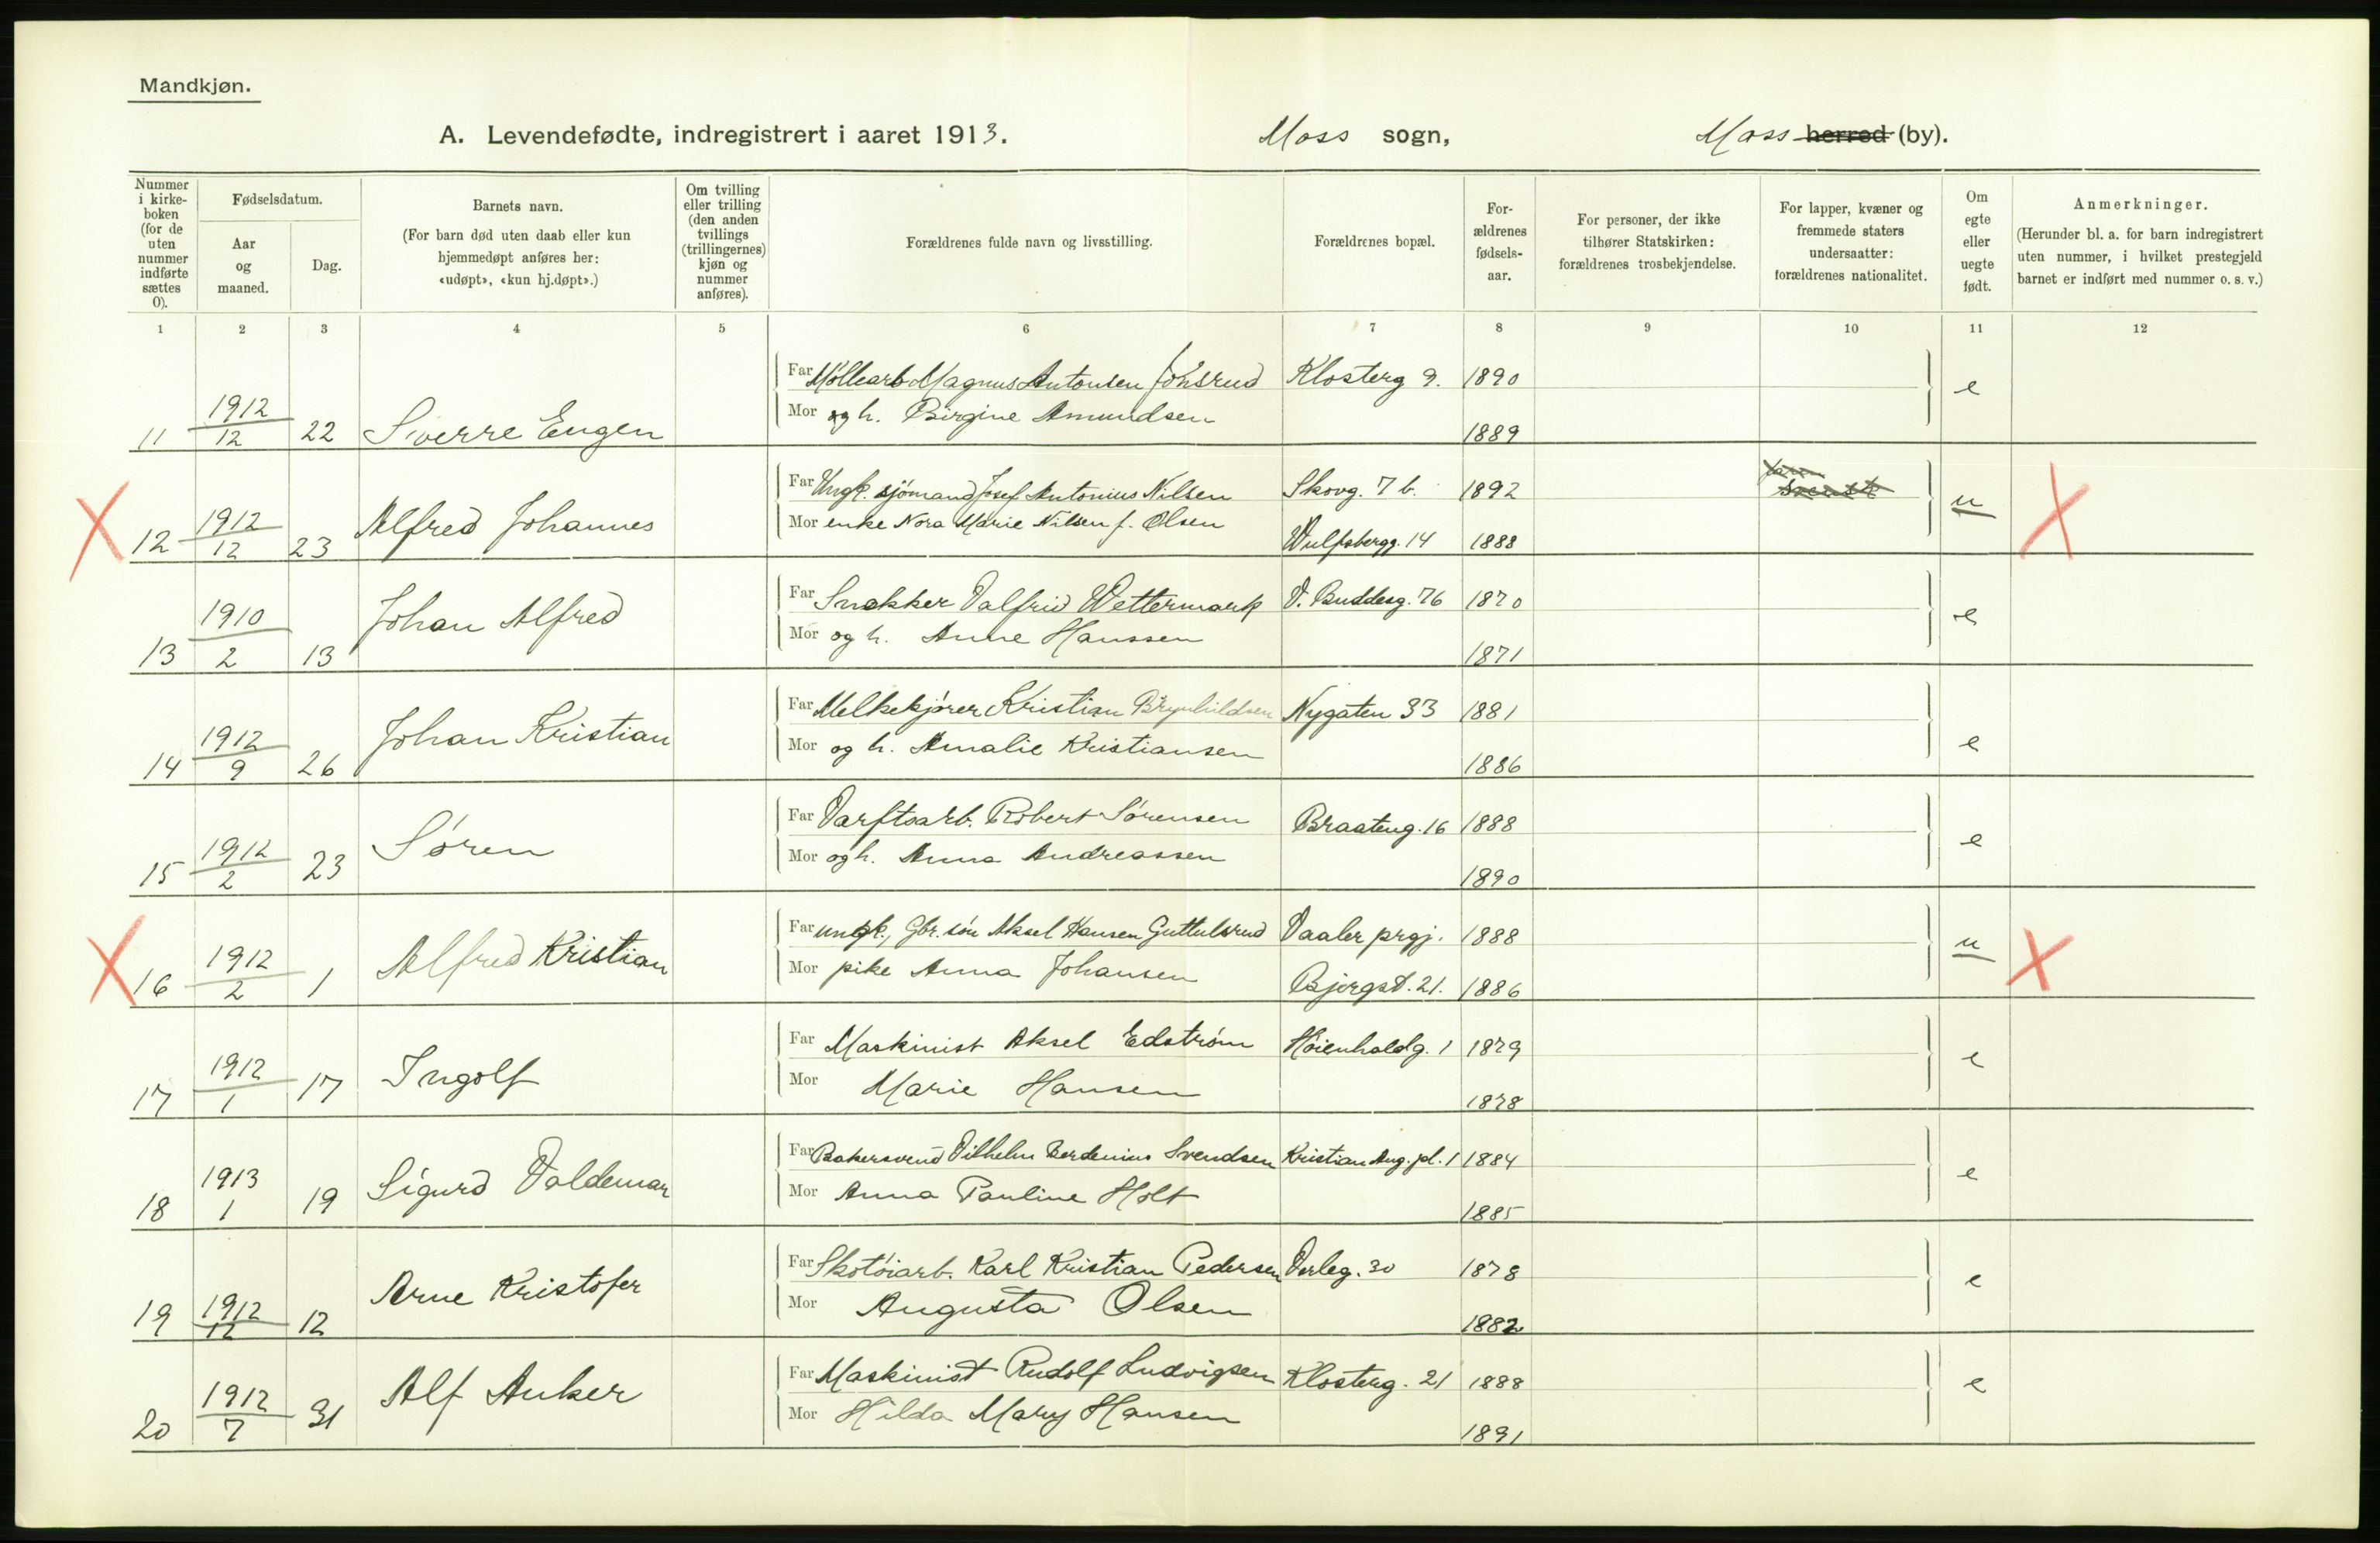 Mandkjøn.
A. Levendefødte, indregistrert i aaret 1913. Moss sogn, Moss herred (by).
Nummer i kirkeboken (for de uten nummer indførte sættes 0).
Fødselsdatum.
Aar og maaned.
Dag.
Barnets navn.
(For barn død uten daab eller kun hjemmedøpt anføres her: «udøpt», «kun hj.døpt».)
Om tvilling eller trilling (den anden tvillings (trillingernes) kjøn og nummer anføres).
Forældrenes fulde navn og livsstilling.
Forældrenes bopæl.
Forældrenes fødselsaar.
For personer, der ikke tilhører Statskirken: forældrenes trosbekjendelse.
For lapper, kvæner og fremmede staters undersaatter: forældrenes nationalitet.
Om egte eller uegte født.
Anmerkninger.
(Herunder bl. a. for barn indregistrert uten nummer, i hvilket prestegjeld barnet er indført med nummer o. s. v.)
1 2 3 4 5 6 7 8 9 10 11 12
Far Møllearb. Magnus Antonsen Jonsrud Klosterg 9. 1890
11 1912/12 22 Sverre Eugen Mor og h. Birgine Amundsen 1889 e
Far Ungk. sjömand Josef Antonius Nilsen Skovg. 7 b. 1892 svensk
12 1912/12 23 Alfred Johannes Mor enke Nora Marie Nilsen f. Olsen Wulfsbergg. 14 1888 u
Far Snekker Valfrid Wettermark V. Buddesg. 76 1870
13 1910/2 13 Johan Alfred Mor og h. Anne Hanssen 1871 e
Far Melkekjører Kristian Brynhildsen Nygaten 33 1881
14 1912/9 26 Johan Kristian Mor og h. Amalie Kristiansen 1886 e
Far Varftsarb. Robert Sørensen Braateng. 16 1888
15 1912/2 23 Søren Mor og h. Anna Andreassen 1890 e
Far ungk., Gbr. søn Aksel Hansen Guttulsrud Vaaler prgj. 1888
16 1912/2 1 Alfred Kristian Mor pike Anna Johansen Bjergst. 21. 1886 u
Far Maskinist Aksel Edstrøm Høienhaldg. 1 1879
17 1912/1 17 Ingolf Mor Marie Hansen 1878 e
Far Bakersvend Vilhelm Berdenius Svendsen Kristian Aug. pl. 1 1884
18 1913 1 19 Sigurd Valdemar Mor Anna Pauline Holt 1885 e
Far Skotøiarb. Karl Kristian Pedersen Verleg. 30 1878
19 1912/12 12 Arne Kristofer Mor Augusta Olsen 1882 e
Far Maskinist Rudolf Ludvigsen Klosterg. 21 1888
20 1912/7 31 Alf Anker Mor Hilda Mary Hansen 1891 e